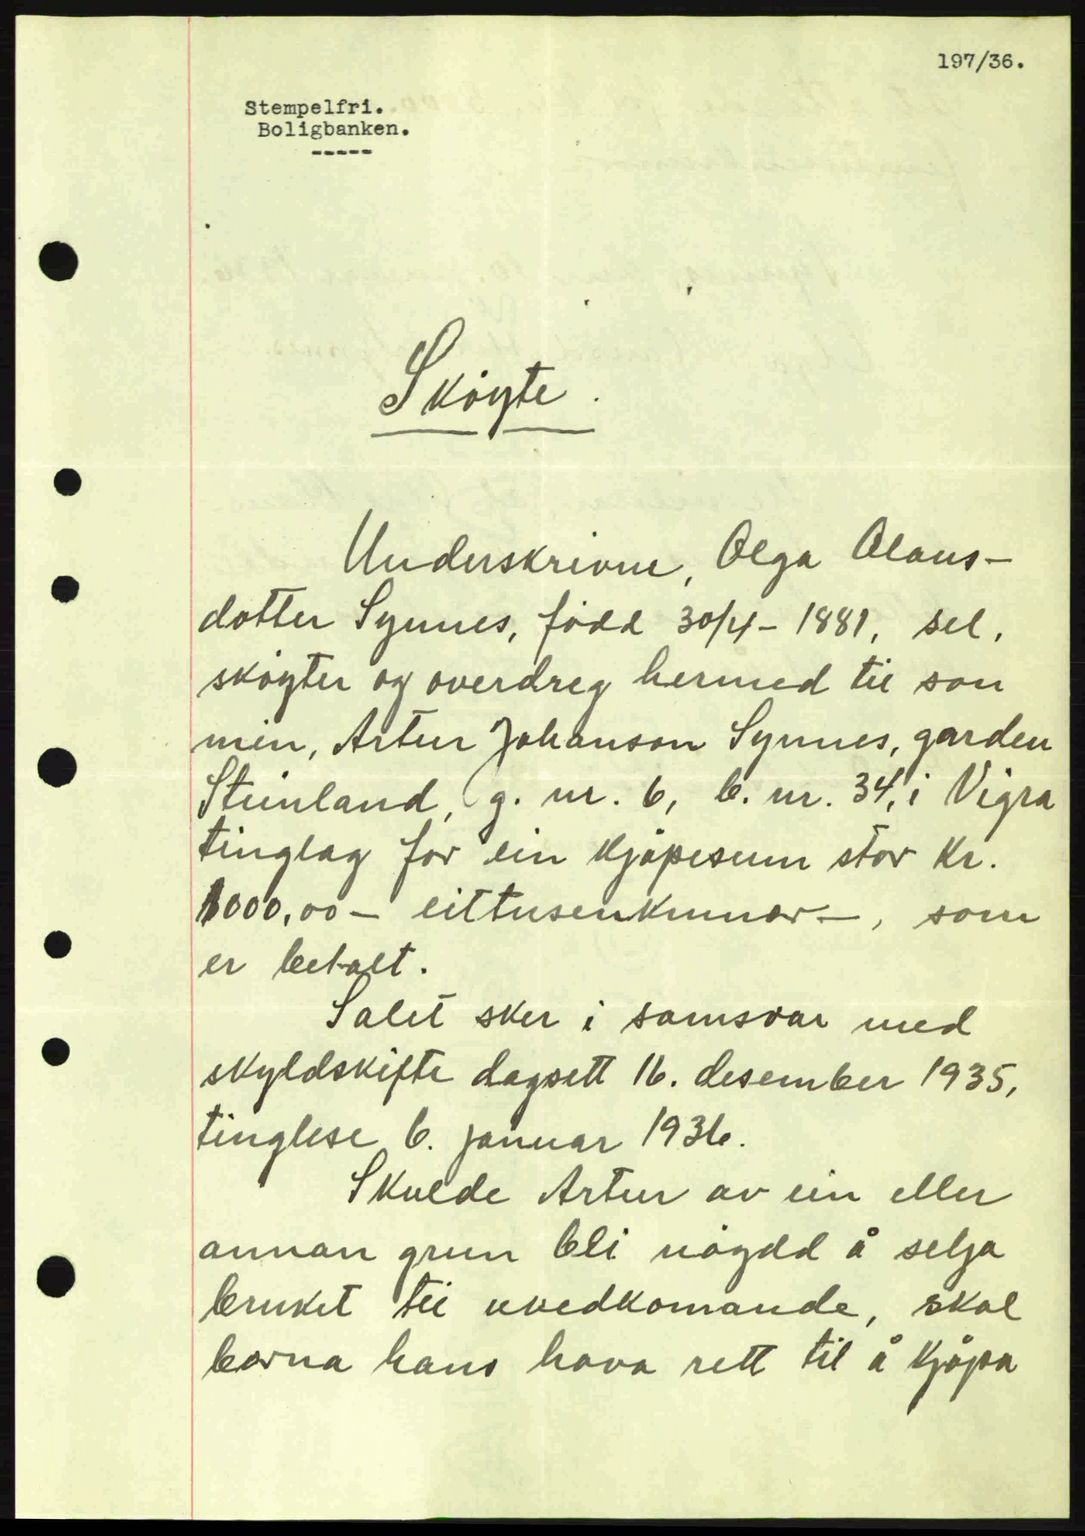 197/36.
Stempelfri.
Boligbanken.
-----
Sköyte.
Underskrivne, Olga Olaus-
dotter Synnes, född 30/4 - 1881, sel,
sköyter og overdreg hermed til son
min, Artur Johanson Synnes, garden
Steinland, g. nr. 6, b. nr. 34, i Vigra
tinglag for ein kjöpesum stor kr.
1000,00 - eittusenkrunor -, som
er betalt.
Salet sker i samsvar med
skyldskifte dagsett 16. desember 1935,
tinglese 6. januar 1936.
Skulde Artur av ein eller
annan grun bli nögdd å selja
bruket til uvedkomande, skal
borna hans hava rett til å kjöpa